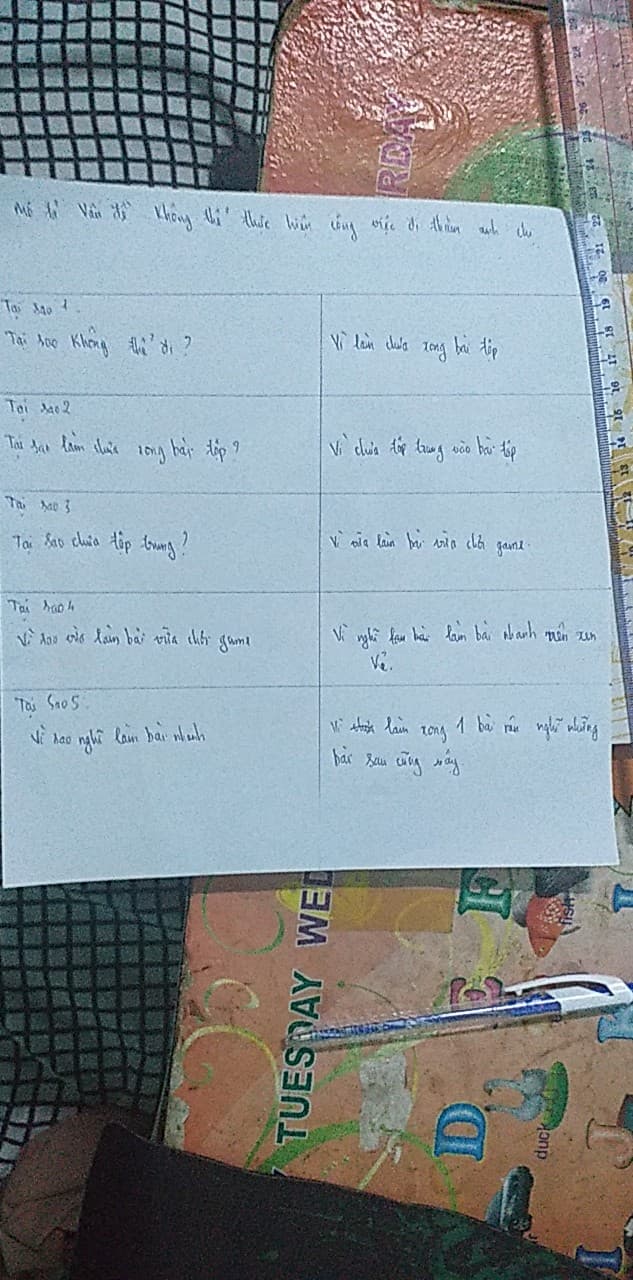 Mô tả vấn đề không thể thực hiện công việc đi thăm anh chị
Tại sao 1.
Tại sao không thể đi?
Vì làm chưa xong bài tập
Tại sao 2
Tại sao làm chưa xong bài tập?
Vì chưa tập trung vào bài tập
Tại sao 3
Tại sao chưa tập trung?
Vì vừa làm bài vừa chơi game.
Tại sao 4
Vì sao vừa làm bài vừa chơi game
Vì nghĩ bài làm bài nhanh nên
Tại sao 5.
Vì sao nghĩ làm bài nhanh
Vì làm xong 1 bài nên nghĩ những
bài sau cũng vậy.
RDAY
TUESDAY
WED
E
fish
E
D
duck
J
I